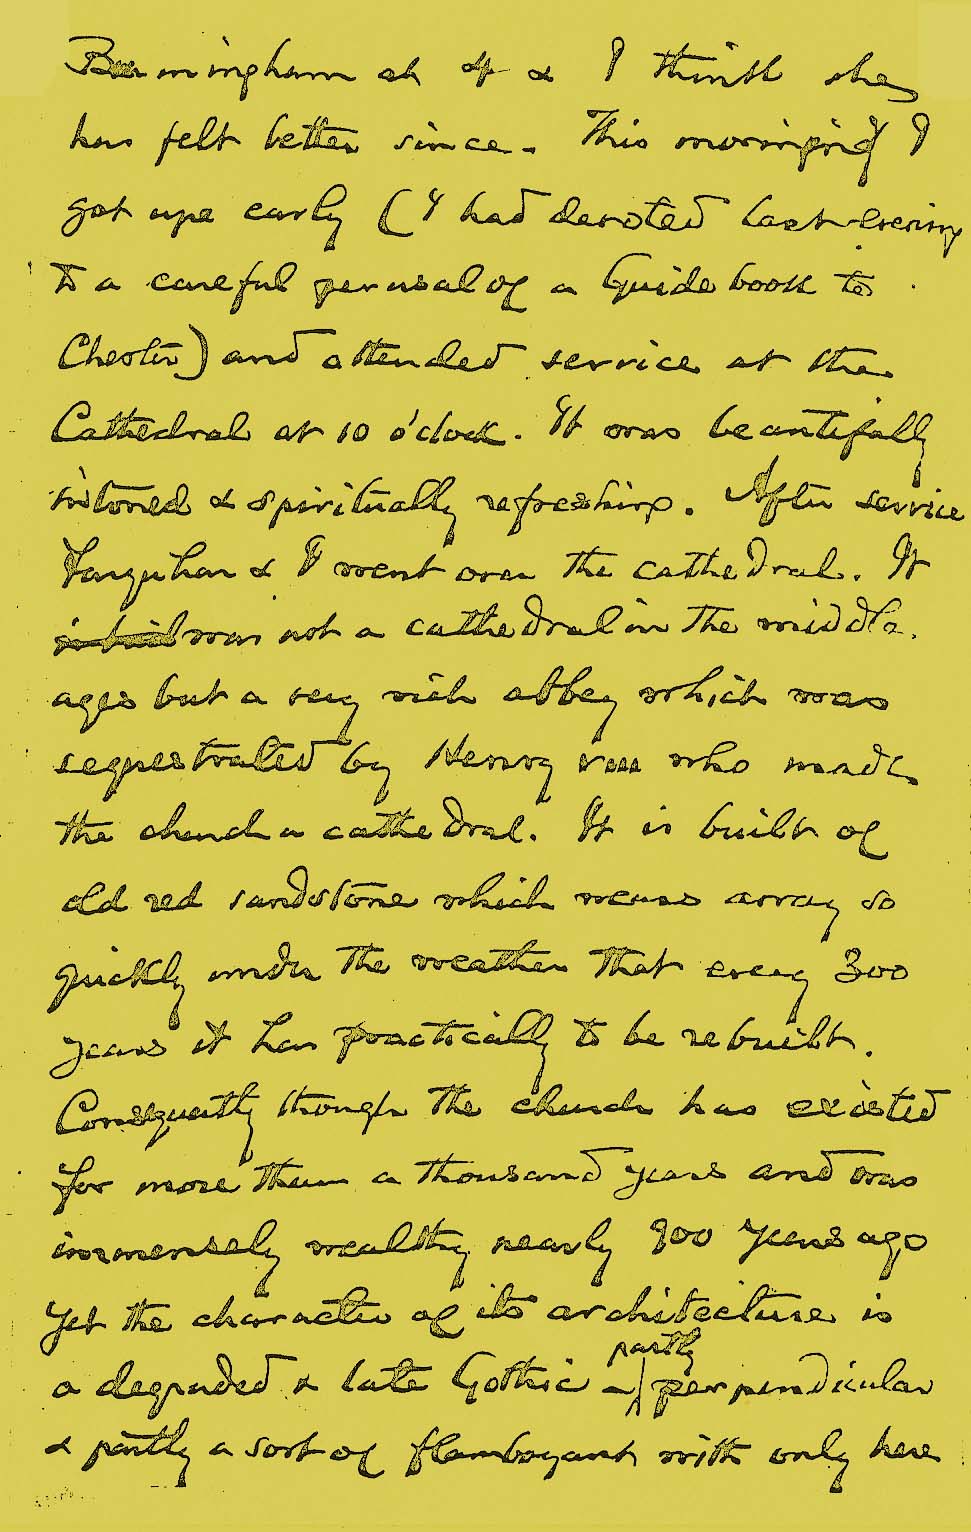 Birmingham at 4 & I think she
has felt better since. This morning I
got up early (I had devoted last evening
to a careful perusal of a Guide book to
Chester) and attended service at the
Cathedral at 10 o'clock. It was beautifully
intoned & spiritually refreshing. After service
Farquhar & I went over the cathedral. It
was not a cathedral in the middle
ages but a very rich abbey which was
sequestrated by Henry VIII who made
the church a cathedral. It is built of
old red sandstone which wears away so
quickly under the weather that every 300
years it has practically to be rebuilt.
Consequently though the church has existed
for more than a thousand years and was
immensely wealthy nearly 900 years ago
yet the character of its architecture is
a degraded & late Gothic – partly perpendicular
& partly a sort of flamboyant with only here